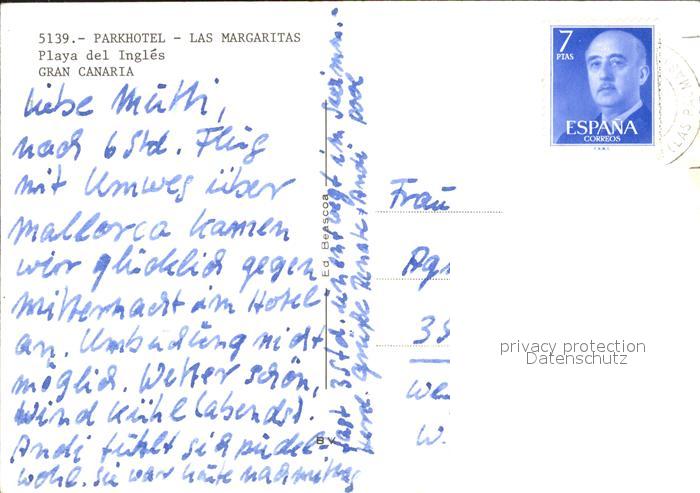 5139.- PARKHOTEL - LAS MARGARITAS
Playa del Inglés
GRAN CANARIA
liebe Mutti,
nach 6 Std. Flug
mit Umweg über
Mallorca kamen
wir glücklich gegen
Mitternacht im Hotel
an. Umbuchung nicht
möglich. Wetter schön,
Wind kühl (abends).
Andi fühlt sich pudel-
wohl. sie war heute nachmittag
fast 3 Std. im
herzl. Grüße Renate + Andi
Ed. Beascoa
B.V.
7
PTAS
ESPAÑA
CORREOS
Frau
privacy protection
Datenschutz